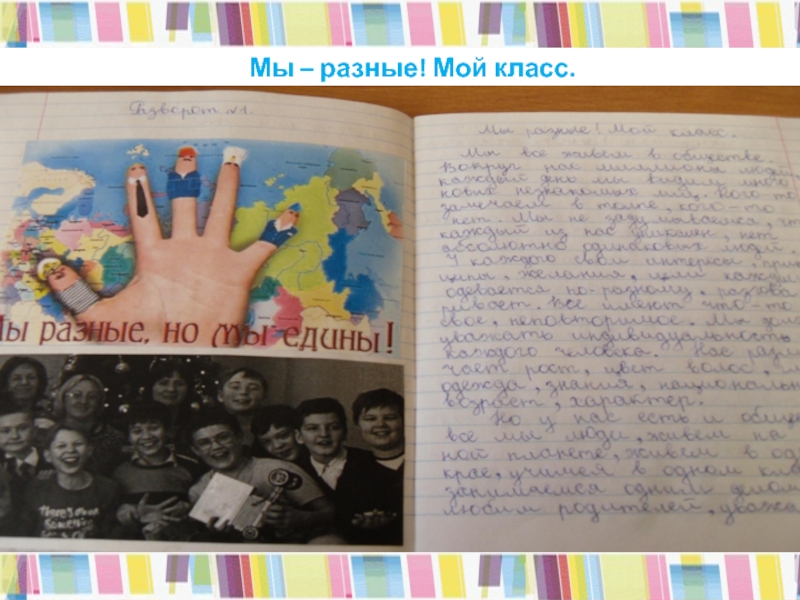 Мы – разные! Мой класс.
Разворот №1.
Мы разные, но мы едины!
Мы разные! Мой класс.
Мы все живем в обществе.
Вокруг нас миллионы людей,
каждый день мы видим много
новых незнакомых лиц. Кого-то
замечаем в толпе, кого-то
нет. Мы не задумываемся, что
каждый из нас уникален, нет
абсолютно одинаковых людей.
У каждого свои интересы, прин
ципы, желания, цели каждый
одевается по-разному, разгова
ривает. Все имеют что-то
свое, неповторимое. Мы
уважать индивидуальность
каждого человека. Нас разли
чает рост, цвет волос,
одежда, знания, националь
возраст, характер!
Но у нас есть и общее
все мы люди, живем на
ной планете, живем в од
крае, учимся в одном
занимаемся одним делом
любим родителей, уважа